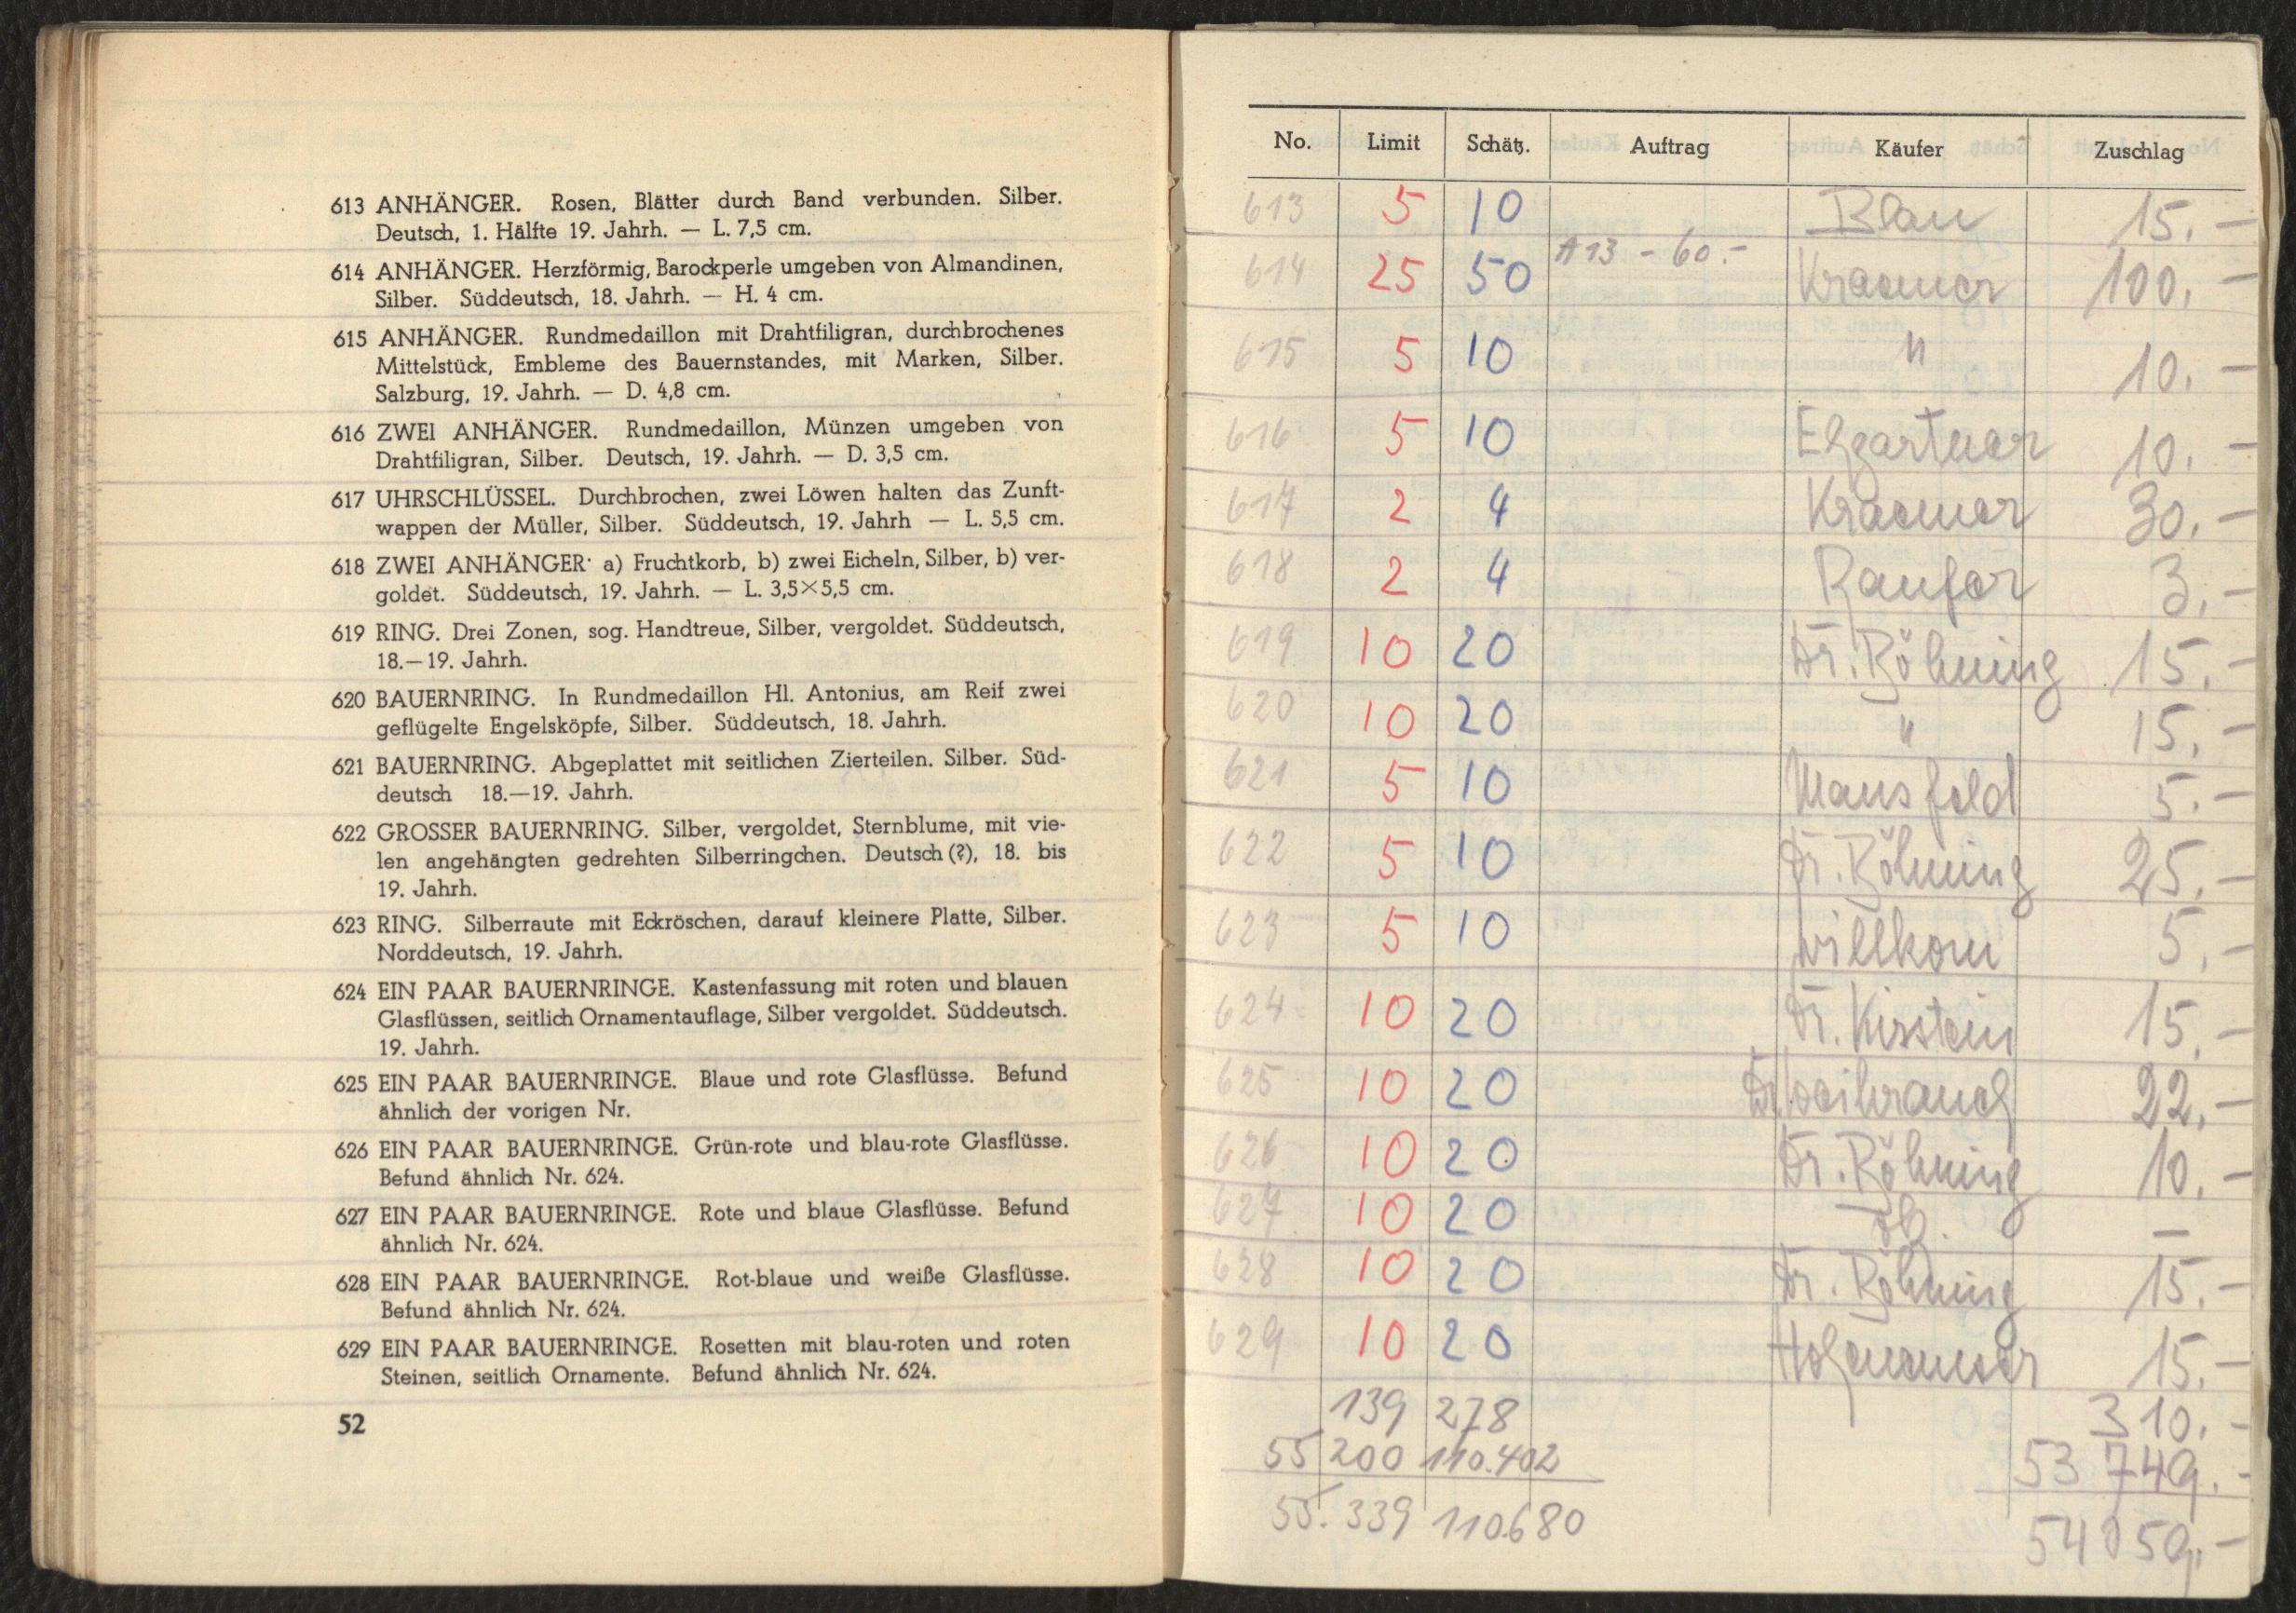 613 ANHÄNGER. Rosen, Blätter durch Band verbunden. Silber.
Deutsch, 1. Hälfte 19. Jahrh. — L. 7,5 cm.
614 ANHÄNGER. Herzförmig, Barockperle umgeben von Almandinen,
Silber. Süddeutsch, 18. Jahrh. — H. 4 cm.
615 ANHÄNGER. Rundmedaillon mit Drahtfiligran, durchbrochenes
Mittelstück, Embleme des Bauernstandes, mit Marken, Silber.
Salzburg, 19. Jahrh. — D. 4,8 cm.
616 ZWEI ANHÄNGER. Rundmedaillon, Münzen umgeben von
Drahtfiligran, Silber. Deutsch, 19. Jahrh. — D. 3,5 cm.
617 UHRSCHLÜSSEL. Durchbrochen, zwei Löwen halten das Zunft-
wappen der Müller, Silber. Süddeutsch, 19. Jahrh — L. 5,5 cm.
618 ZWEI ANHÄNGER· a) Fruchtkorb, b) zwei Eicheln, Silber, b) ver-
goldet. Süddeutsch, 19. Jahrh. — L. 3,5×5,5 cm.
619 RING. Drei Zonen, sog. Handtreue, Silber, vergoldet. Süddeutsch,
18.—19. Jahrh.
620 BAUERNRING. In Rundmedaillon Hl. Antonius, am Reif zwei
geflügelte Engelsköpfe, Silber. Süddeutsch, 18. Jahrh.
621 BAUERNRING. Abgeplattet mit seitlichen Zierteilen. Silber. Süd-
deutsch 18.—19. Jahrh.
622 GROSSER BAUERNRING. Silber, vergoldet, Sternblume, mit vie-
len angehängten gedrehten Silberringchen. Deutsch (?), 18. bis
19. Jahrh.
623 RING. Silberraute mit Eckröschen, darauf kleinere Platte, Silber.
Norddeutsch, 19. Jahrh.
624 EIN PAAR BAUERNRINGE. Kastenfassung mit roten und blauen
Glasflüssen, seitlich Ornamentauflage, Silber vergoldet. Süddeutsch.
19. Jahrh.
625 EIN PAAR BAUERNRINGE. Blaue und rote Glasflüsse. Befund
ähnlich der vorigen Nr.
626 EIN PAAR BAUERNRINGE. Grün-rote und blau-rote Glasflüsse.
Befund ähnlich Nr. 624.
627 EIN PAAR BAUERNRINGE. Rote und blaue Glasflüsse. Befund
ähnlich Nr. 624.
628 EIN PAAR BAUERNRINGE. Rot-blaue und weiße Glasflüsse.
Befund ähnlich Nr. 624.
629 EIN PAAR BAUERNRINGE. Rosetten mit blau-roten und roten
Steinen, seitlich Ornamente. Befund ähnlich Nr. 624.
52
No. Limit Schätz. Auftrag Käufer Zuschlag
613 5 10 Blau 15.—
614 25 50 A13 - 60.- Kraemer 100.—
615 5 10 " 10.—
616 5 10 10.—
617 2 4 Kraemer 30.—
618 2 4 Ranfer 3.—
619 10 20 Dr. Röhning 15.—
620 10 20 " 15.—
621 5 10 Mansfeld 5.—
622 5 10 Dr. Röhning 25.—
623 5 10 Willkom 5.—
624 10 20 Dr. Kirstein 15.—
625 10 20 Dr Weihrauch 22.—
626 10 20 Dr. Röhning 10.—
627 10 20 —
628 10 20 Dr. Röhning 15.—
629 10 20 15.—
139 278 310.—
55 200 110.402 53 749.-
55.339 110.680 54 059.—